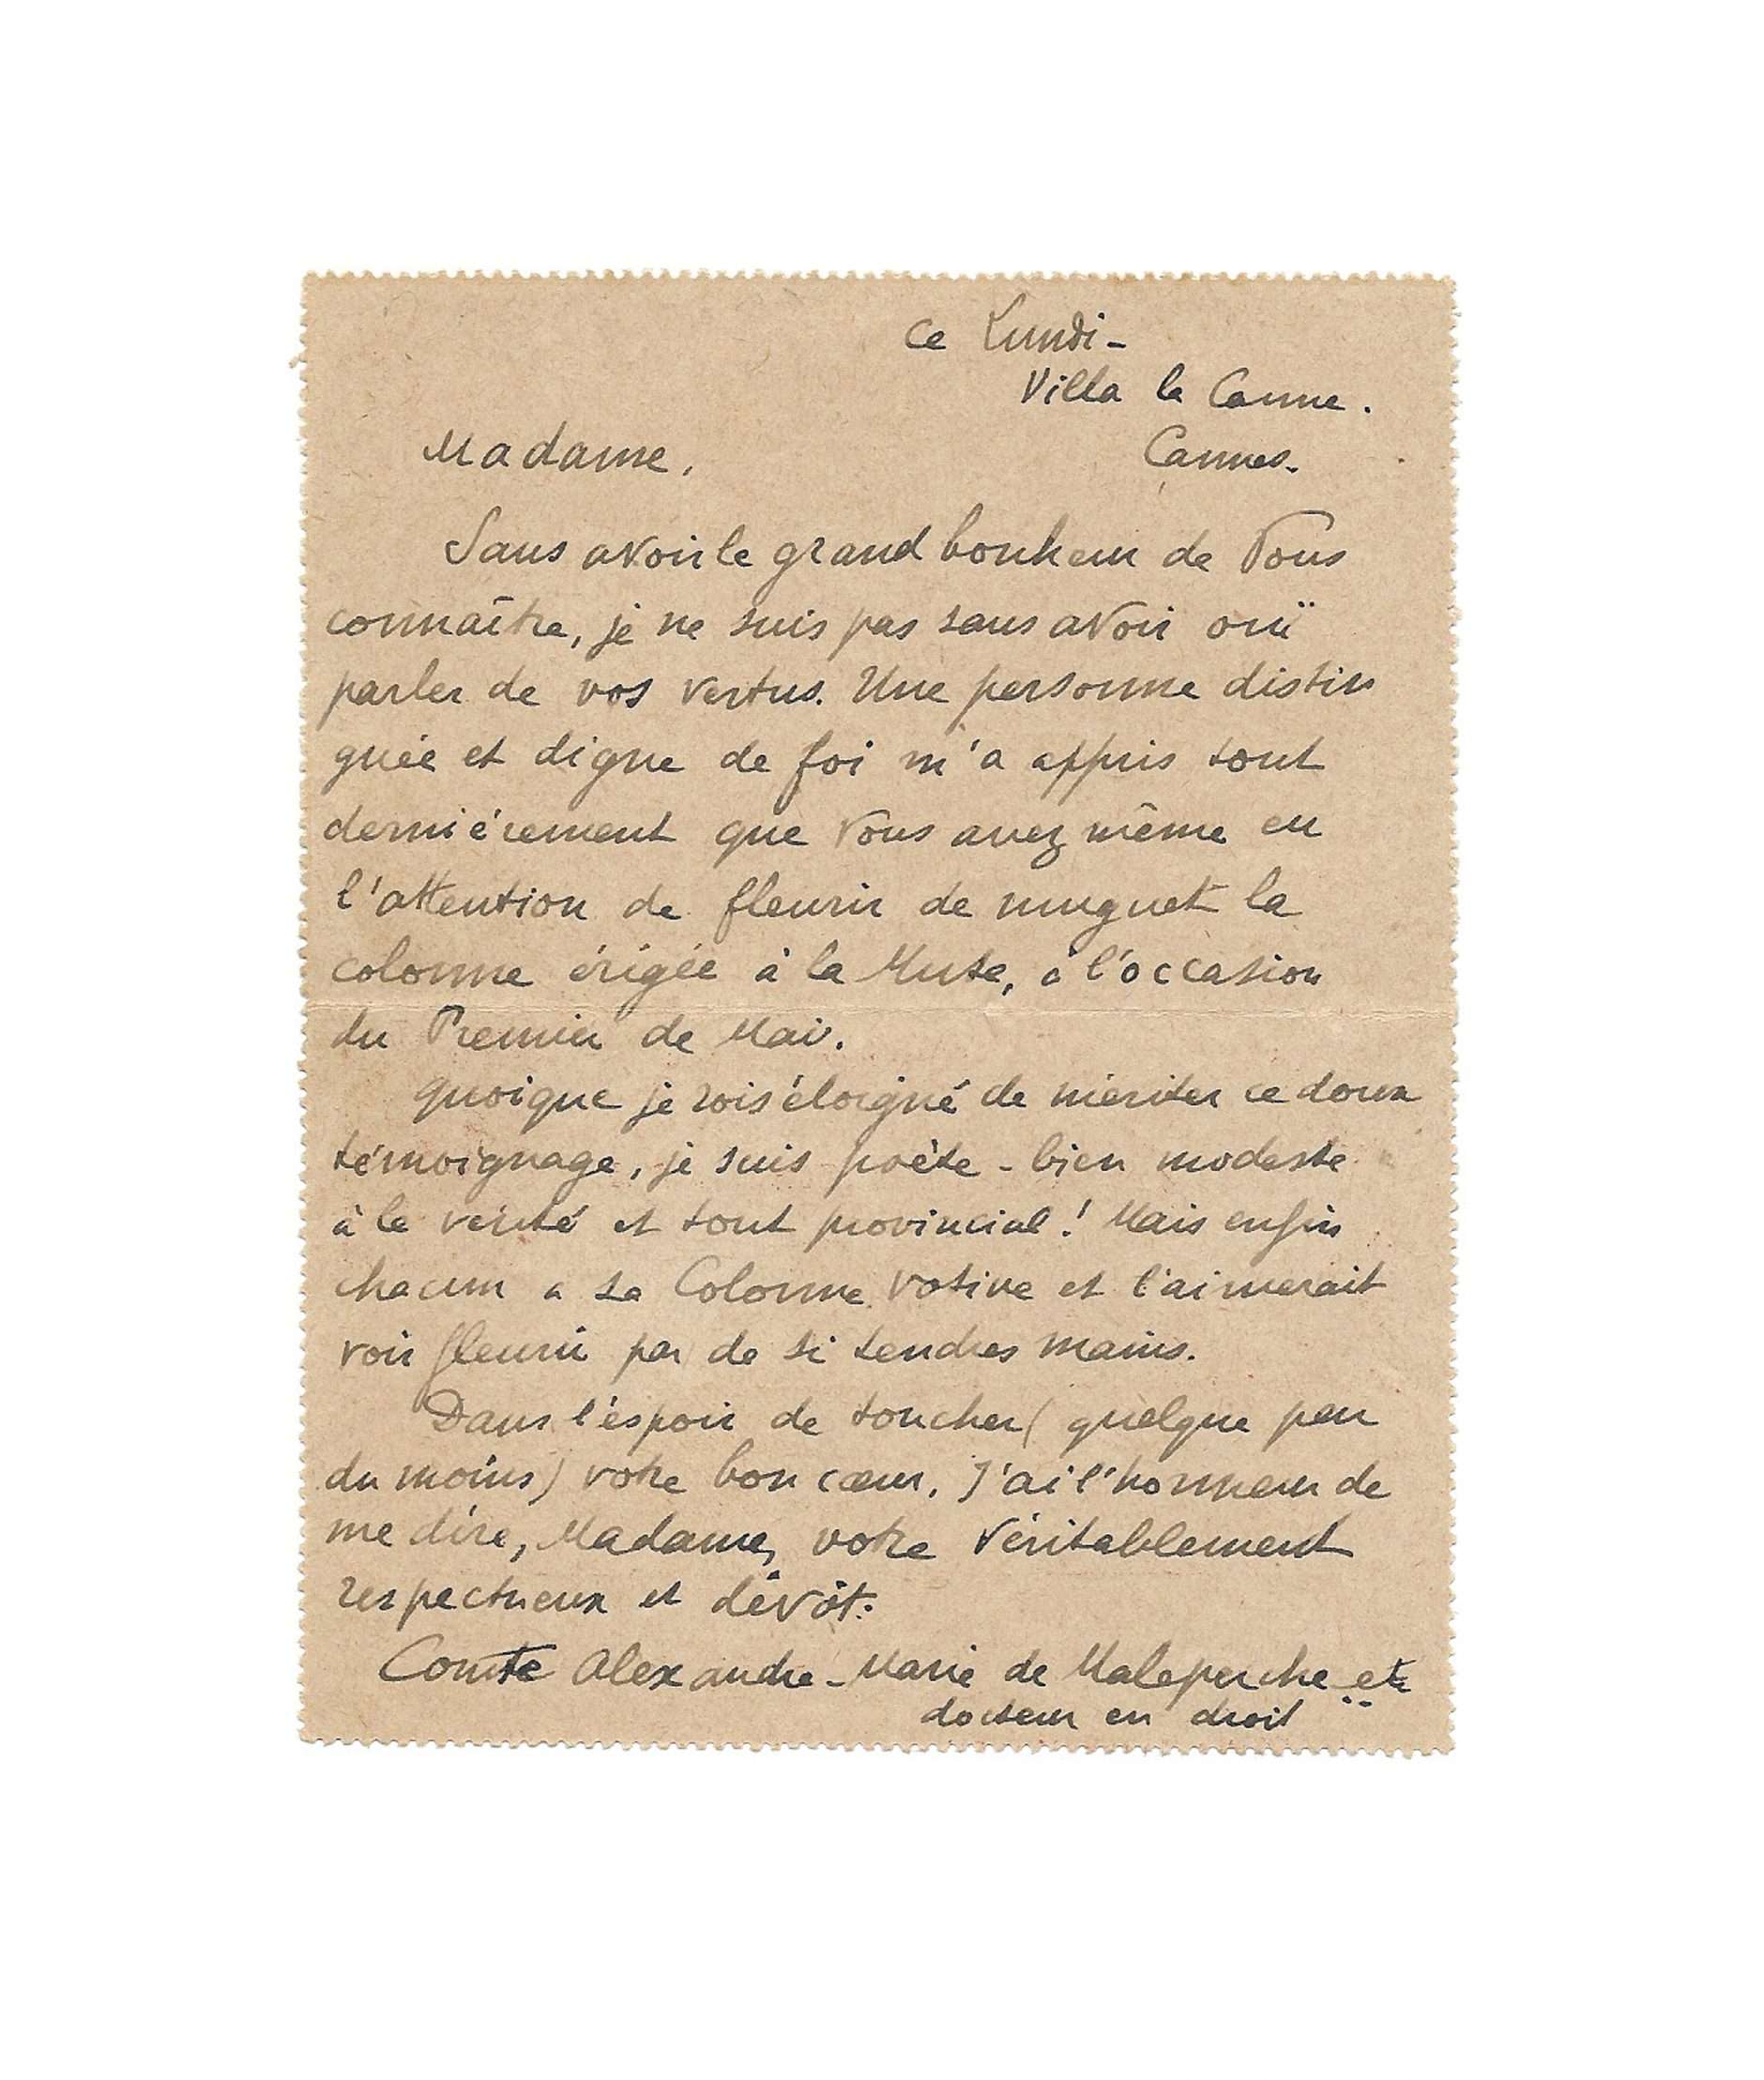 Ce Lundi -
Villa la Canne.
Cannes.
Madame,
Sans avoir le grand bonheur de Vous
connaître, je ne suis pas sans avoir ouï
parler de vos vertus. Une personne distin
guée et digne de foi m'a appris tout
dernièrement que Vous avez même eu
l'attention de fleurir de muguet la
colonne érigée à la Muse, à l'occasion
du Premier de Mai.
Quoique je sois éloigné de mériter ce doux
témoignage, je suis poète - bien modeste
à la vérité et tout provincial ! Mais enfin
chacun a sa Colonne votive et l'aimerait
voir fleurir par de si tendres mains.
Dans l'espoir de toucher ( quelque peu
du moins ) votre bon cœur, J'ai l'honneur de
me dire, Madame, votre véritablement
respectueux et dévôt:
Comte Alexandre - Marie de Maleperche etc
docteur en droit